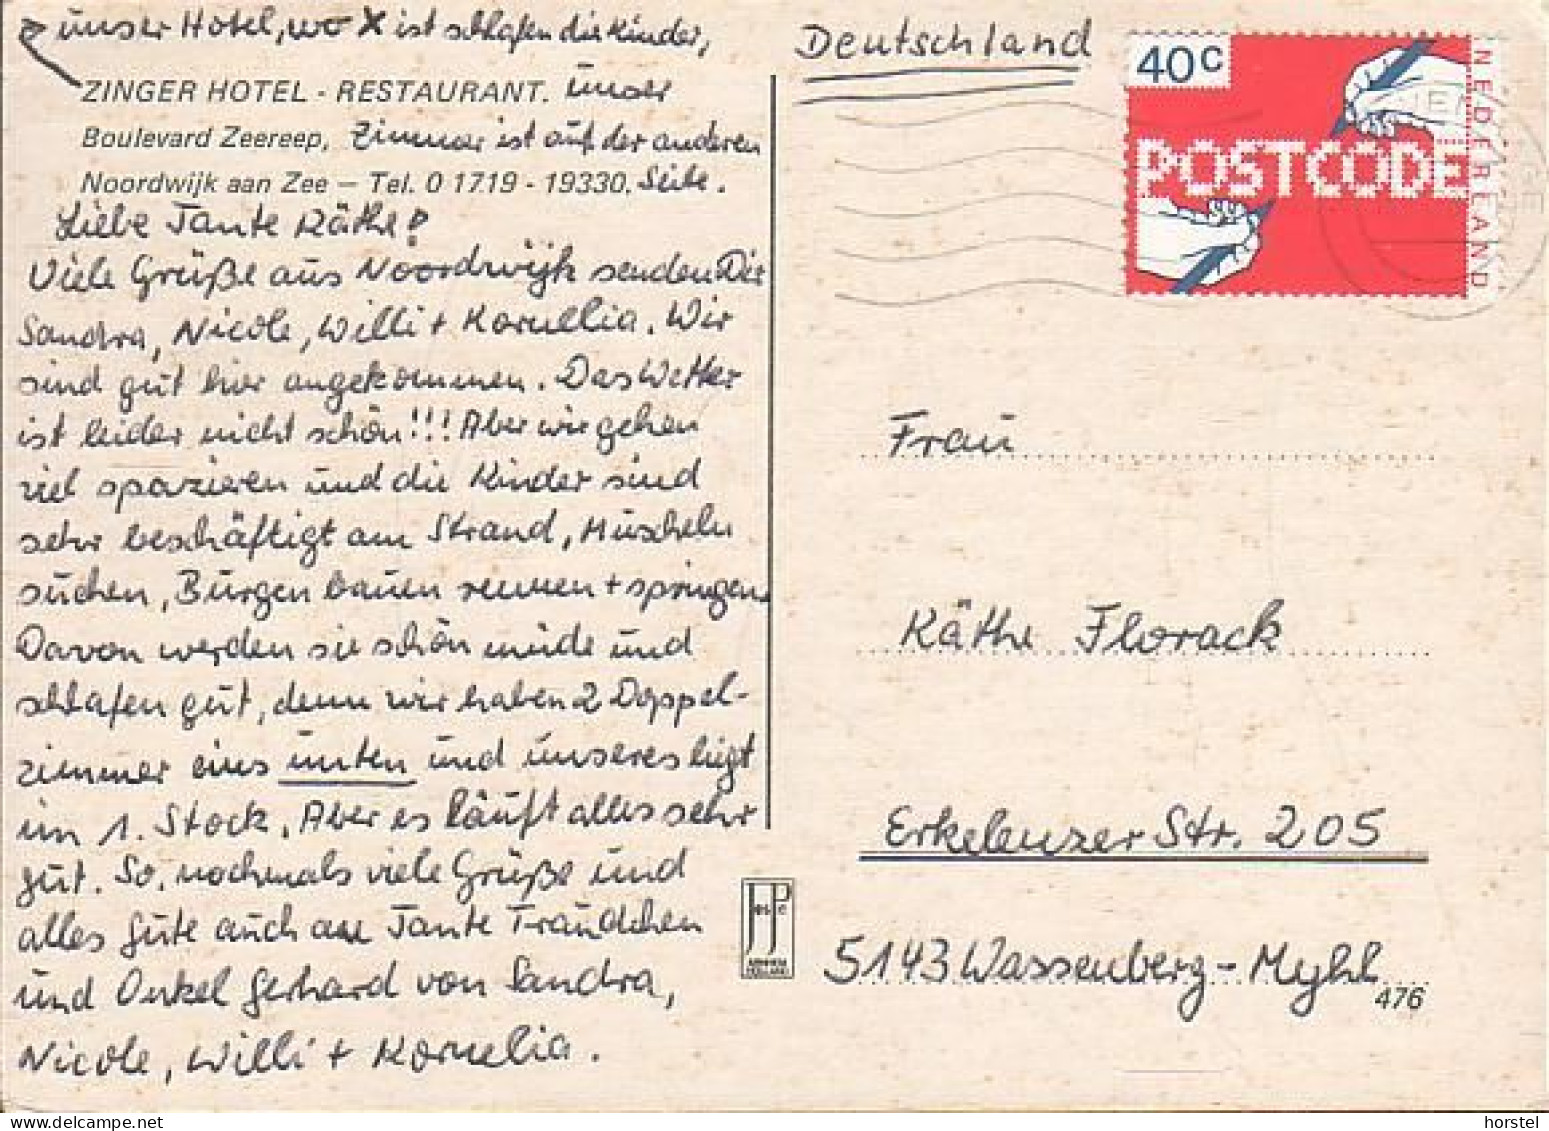 unser Hotel, wo X ist schlafen die Kinder,
ZINGER HOTEL - RESTAURANT. unser
Boulevard Zeereep, Zimmer ist auf der anderen
Noordwijk aan Zee – Tel. 0 1719 - 19330. Seite.
Liebe Tante Käthe!
Viele Grüße aus Noordwijk senden Dir
Sandra, Nicole, Willi + Kornelia. Wir
sind gut hier angekommen. Das Wetter
ist leider nicht schön!!! Aber wir gehen
viel spazieren und die Kinder sind
sehr beschäftigt am Strand, Muscheln
suchen, Burgen bauen rennen + springen.
Davon werden sie schön müde und
schlafen gut, denn wir haben 2 Doppel-
zimmer eins unten und unseres liegt
im 1. Stock. Aber es läuft alles sehr
gut. So, nochmals viele Grüße und
alles Gute auch an Tante Traudchen
und Onkel Gerhard von Sandra,
Nicole, Willi + Kornelia.
Deutschland
40c
POSTCODE
NEDERLAND
Frau
Käthe Florack
Erkelenzer Str. 205
5143 Wassenberg-Myhl
476